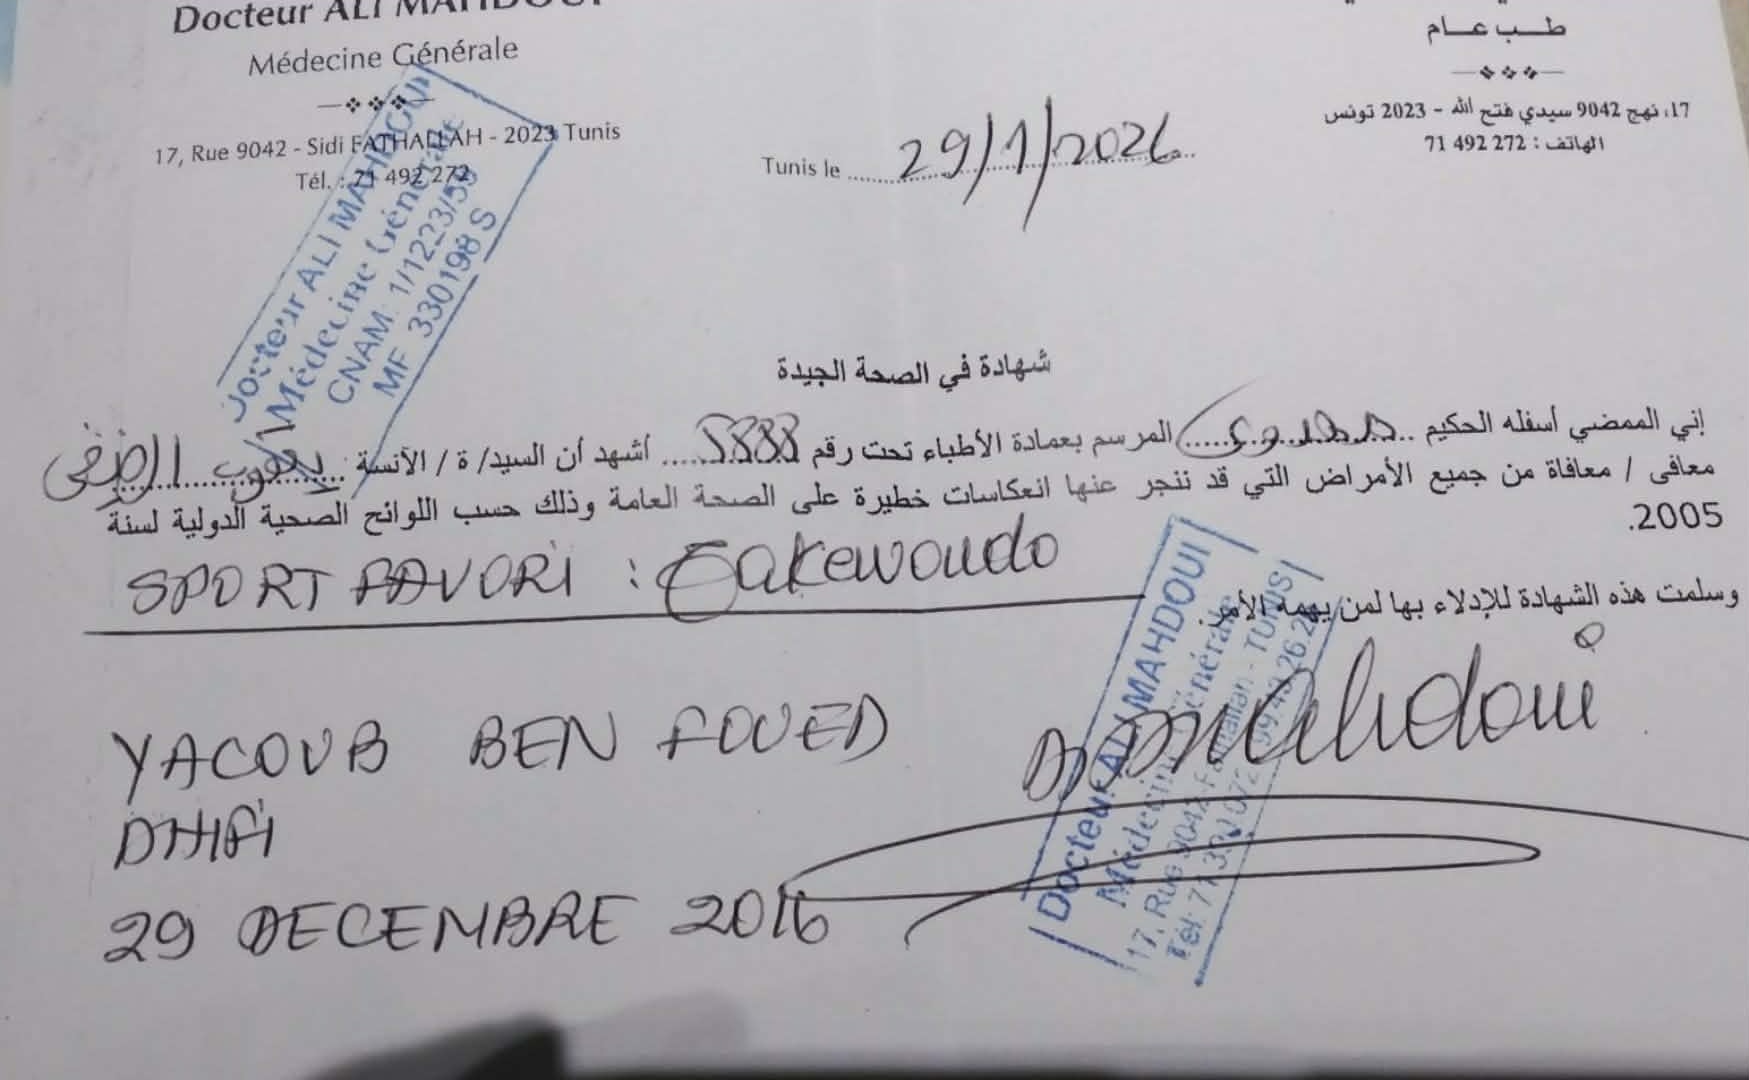 Docteur ALI MAHDOUI
Médecine Générale
17, Rue 9042 - Sidi FATHALLAH - 2023 Tunis
Tél. : 71 492 272
طب عام
17، نهج 9042 سيدي فتح الله - 2023 تونس
الهاتف : 272 492 71
Tunis le 29/1/2026
Docteur ALI MAHDOUI
Médecine Générale
CNAM: 1/1223/59
MF 330198 S
شهادة في الصحة الجيدة
إني الممضي أسفله الحكيم المرسم بعمادة الأطباء تحت رقم 5888 أشهد أن السيد/ ة / الآنسة : يعقوب الضيفي
معافى / معافاة من جميع الأمراض التي قد ننجر عنها انعكاسات خطيرة على الصحة العامة وذلك حسب اللوائح الصحية الدولية لسنة
2005.
SPORT FAVORI : Taekewoudo
وسلمت هذه الشهادة للإدلاء بها لمن يهمه الأمر.
YACOUB BEN FOUED
DHIFI
29 DECEMBRE 2016
Dr Mahdoui
Docteur ALI MAHDOUI
Médecine Générale
17, Rue 9042 Fathallah - TUNIS